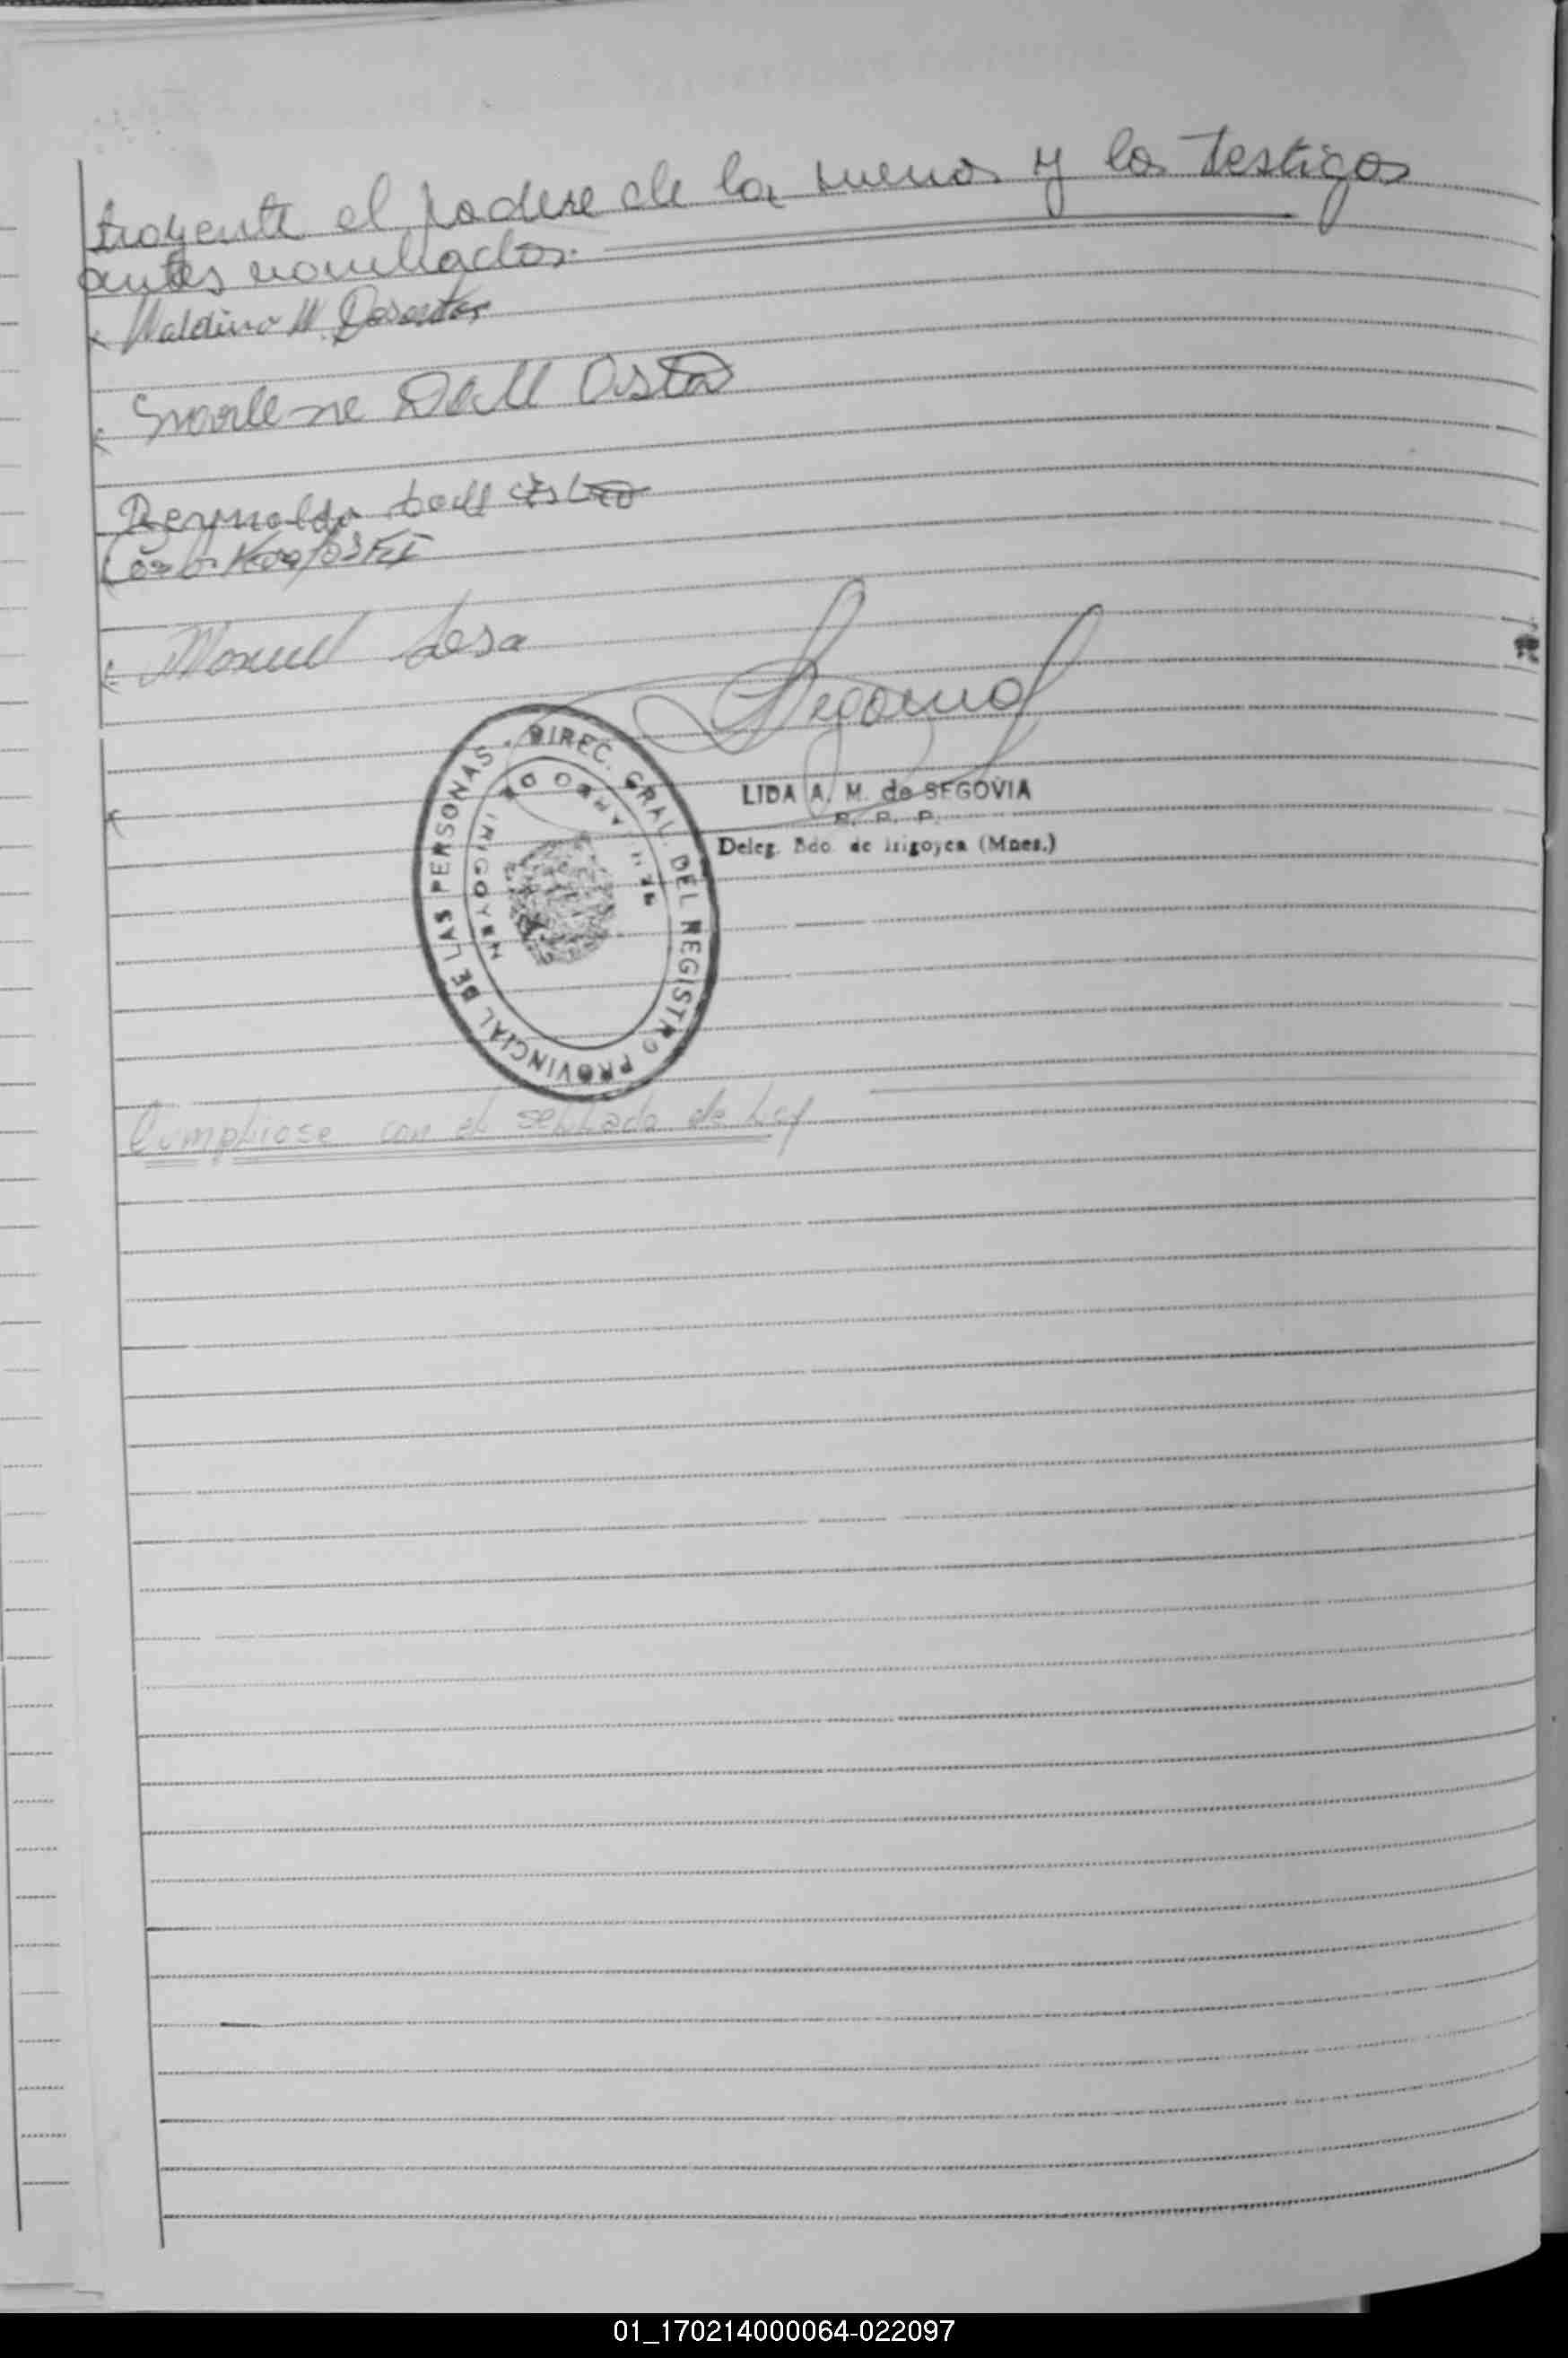 trayente el padre de la menor y los testigos
antes nombrados.
Waldino W.
Marlene Dall Osto
Reynaldo Dall Osto
Manuel Sosa
Segovia
DIREC. GRAL. DEL REGISTRO PROVINCIAL DE LAS PERSONAS
BERNARDO DE IRIGOYEN
LIDA A. M. de SEGOVIA
R. P. P.
Deleg. Bdo. de Irigoyen (Mnes.)
Cumpliose con el sellado de Ley
01_170214000064-022097